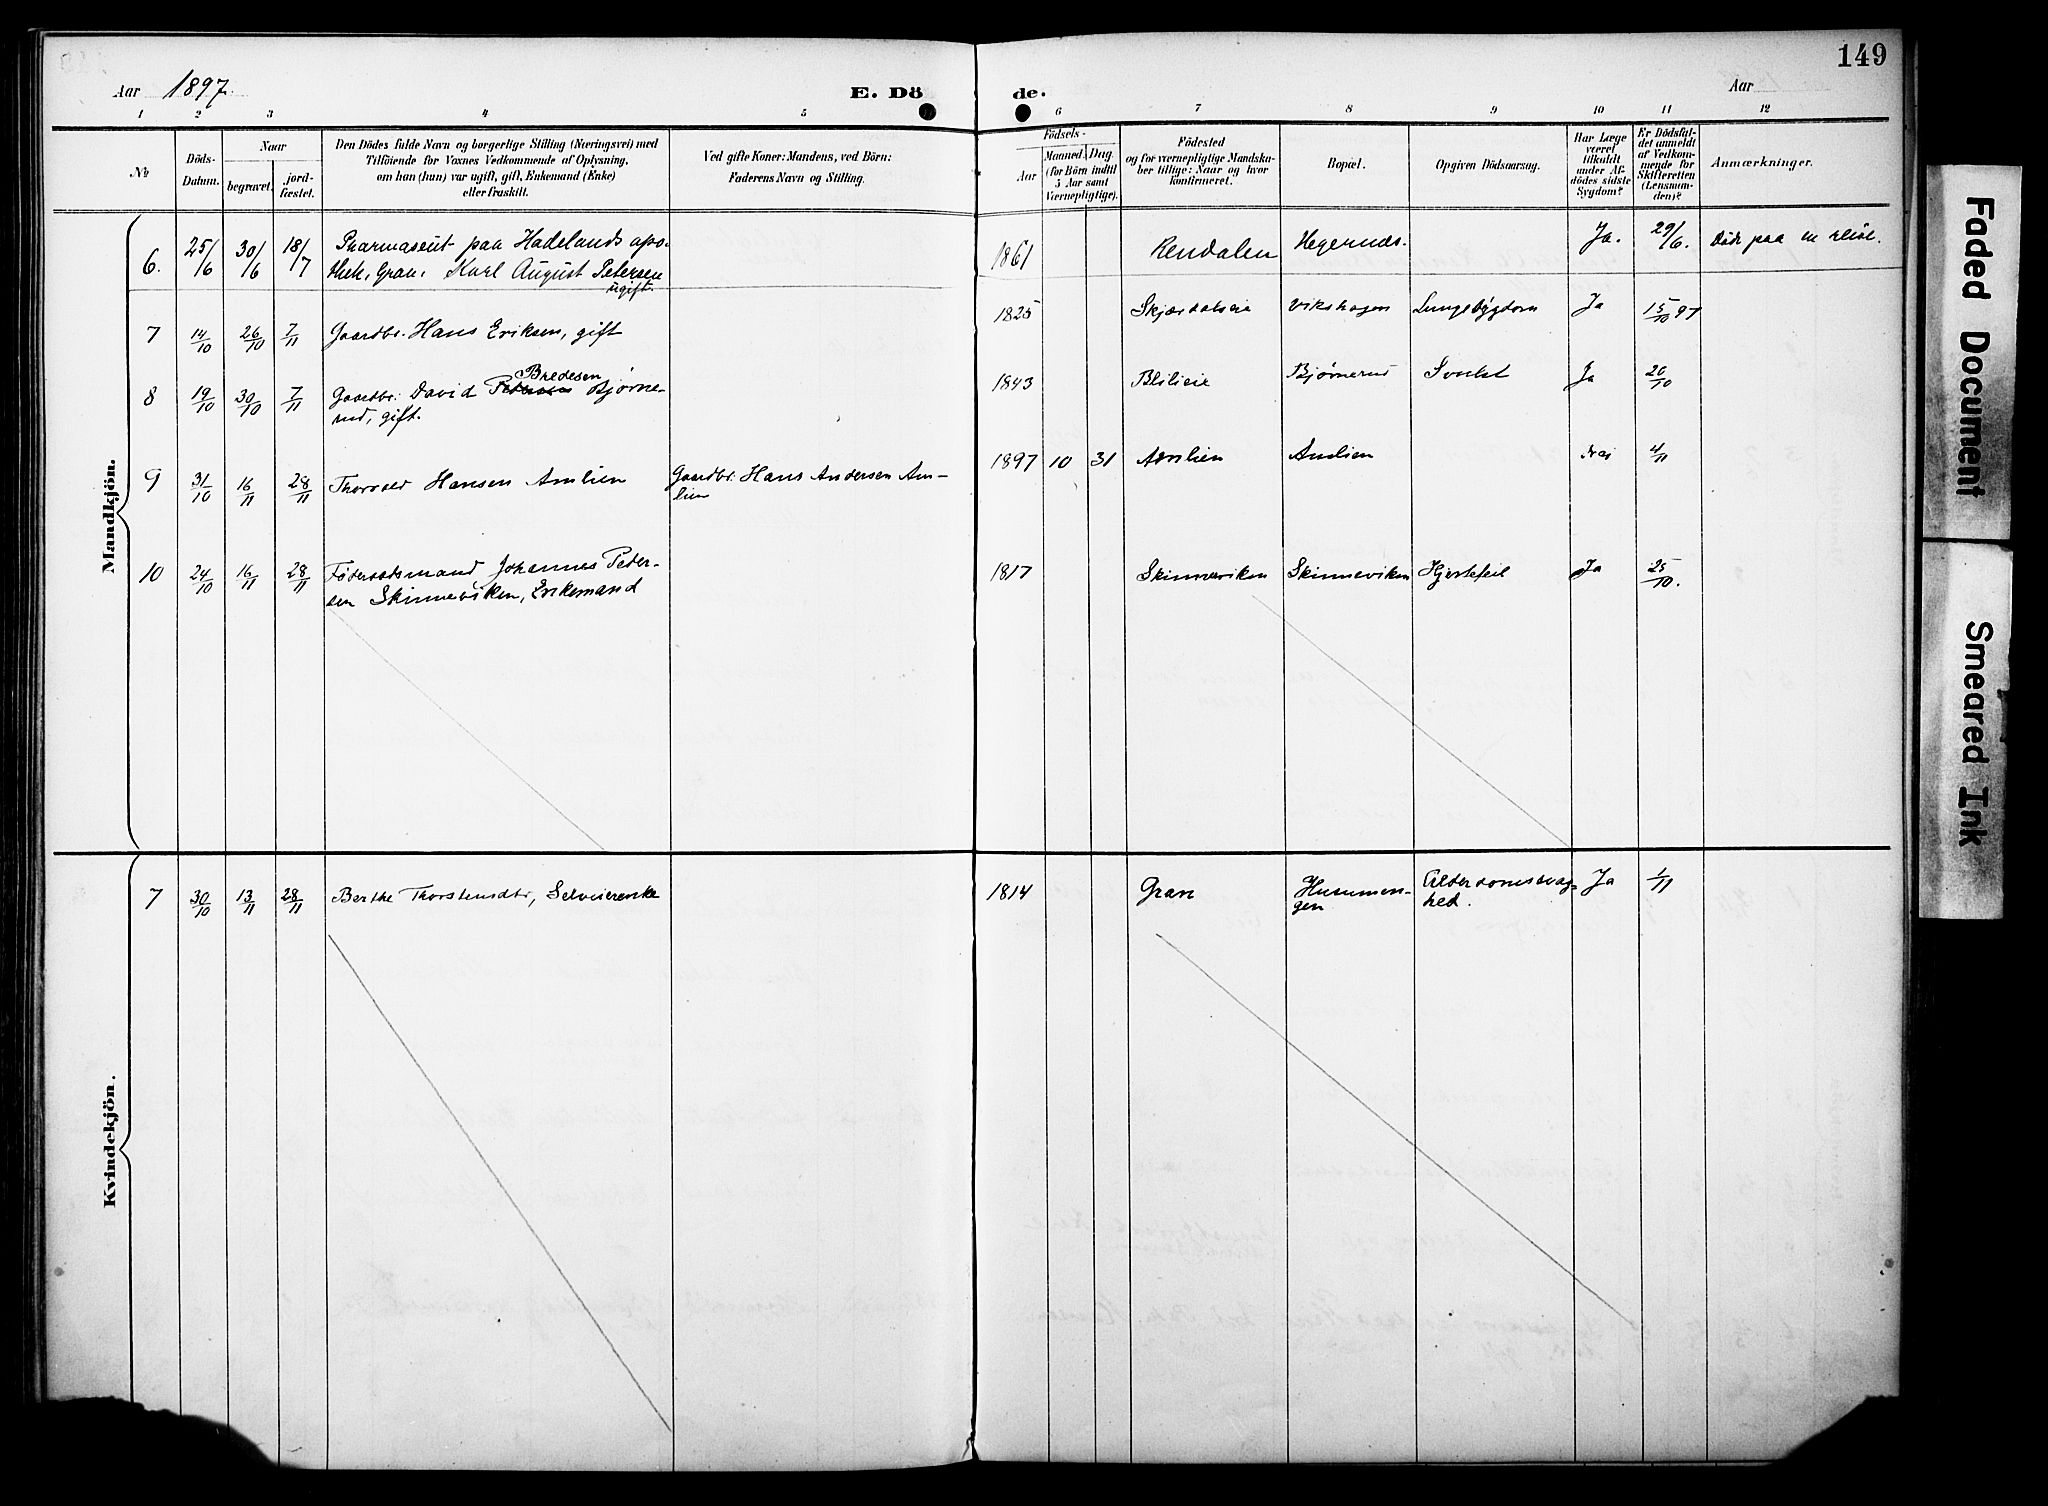 149
Aar 1897.
E. Dö
de.
Aar
1 2 3 4 5 6 7 8 9 10 11 12
No
Döds-
Datum.
Naar
begravet.
jord-
fæstet.
Den Dödes fulde Navn og borgerlige Stilling (Næringsvei) med
Tilföiende for Voxnes Vedkommende af Oplysning,
om han (hun) var ugift, gift, Enkemand (Enke)
eller fraskilt.
Ved gifte Koner: Mandens, ved Börn:
Faderens Navn og Stilling.
Födsels-
Aar
Maaned. Dag.
(for Börn indtil
5 Aar samt
Værnepligtige).
Födested
og for værnepligtige Mandska-
ber tillige: Naar og hvor
konfirmeret.
Bopæl.
Opgiven Dödsaarsag.
Har Læge
været
tilkaldt
under Af-
dödes sidste
Sygdom?
Er Dödsfal-
det anmeldt
af Vedkom-
mende for
Skifteretten
(Lensman-
den)?
Anmærkninger.
Mandkjön.
6. 25/6 30/6 18/7 Pharmaseut paa Hadelands apo-
thek, Gran, Karl August Petersen
ugift.
1861 Rendalen Hegernæs. Ja. 29/6. Döde paa en reise.
7 14/10 26/10 7/11 Gaardbr. Hans Eriksen, gift
1825 Skjærdalseie Vikshagen Ja 15/10 97
Bredesen
8 19/10 30/10 7/11 Gaardbr. David Bjørne-
rud, gift.
1843 Blilieie Bjørnerud Ja 20/10
9 31/10 16/11 28/11 Hansen Amlien Gaardbr. Hans Andersen Am-
lien
1897 10 31 Amlien Amlien Nei 4/11
10 24/10 16/11 28/11 Føderaadsmand Johannes Peder-
sen Skinneviken, Enkemand
1817 Skinneviken Skinneviken Hjertefeil Ja 25/10.
Kvindekjön.
7 30/10 13/11 28/11 Berthe Thorstensdtr, Selveierenke
1814 Gran Husummen-
gen
Alderdomssvag-
hed.
Ja 1/11
Faded Document
Smeared Ink